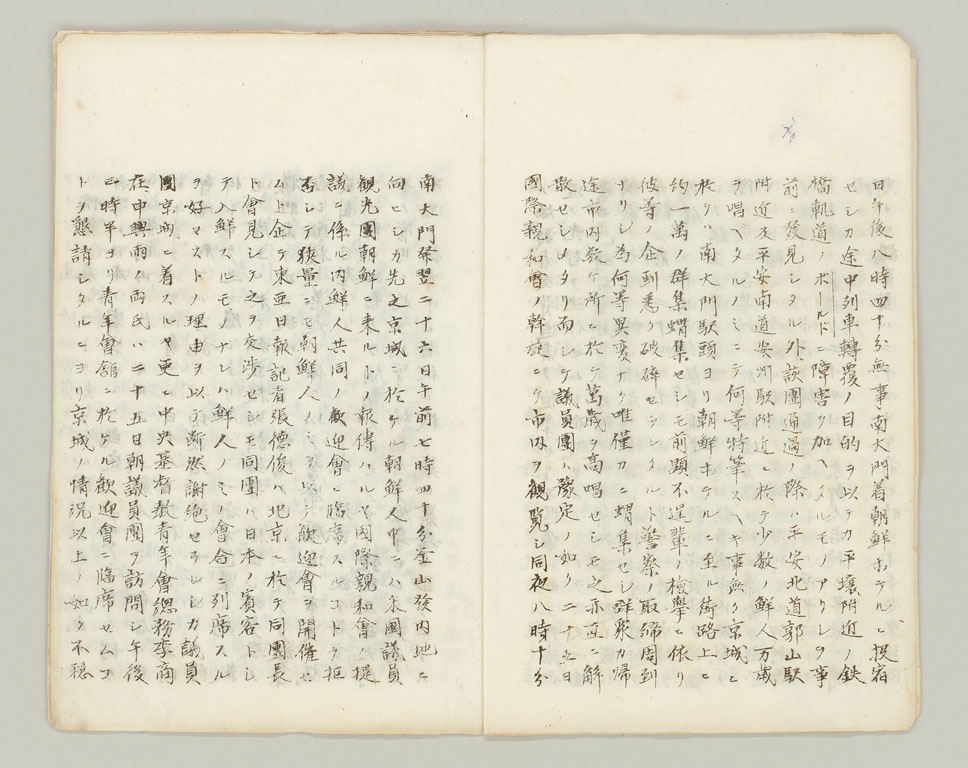 日午後八時四十分無事南大門着朝鮮ホテルニ投宿
セシカ途中列車轉覆ノ目的ヲ以テカ平壤附近ノ鉄
橋軌道ノボールドニ障害ヲ加ヘタルモノアリシヲ事
前ニ發見シタル外該團通過ノ際ハ平安北道郭山駅
附近及平安南道安洲駅附近ニ於テ少数ノ鮮人万歳
ヲ唱ヘタルノミニテ何等特筆スヘキ事無ク京城ニ
於テハ南大門駅頭ヨリ朝鮮ホテルニ至ル街路上ニ
約一萬ノ群集蝟集セシモ前顕不逞輩ノ檢擧ニ依リ
彼等ノ企劃悉ク破碎セラレタルト警察ノ取締周到
ナリシ為何等異変ナク唯僅カニ蝟集セシ群衆カ帰
途市内数ケ所ニ於テ萬歳ヲ高唱セシモ之亦直ニ解
散セシメタリ而シテ議員團ハ豫定ノ如ク二十五日
國際親和會ノ幹旋ニテ市内ヲ観覧シ同夜八時十分
南大門發翌二十六日午前七時四十分釜山發内地ニ
向ヒシカ先之京城ニ於ケル朝鮮人中ニハ米國議員
観光團朝鮮ニ来ルトノ報傳ハルヤ國際親和會ノ提
議ニ係ル内鮮人共同ノ歓迎會ニ臨席スルコトヲ拒
否シテ狹量ニモ朝鮮人ノミヲ以テ歓迎會ヲ開催セ
ムト企テ東亜日報記者張德俊ハ北京ニ於テ同團長
ト會見シテ之ヲ交渉セシモ同團ハ日本ノ賓客トシ
テ入鮮スルモノナレハ鮮人ノミノ會合ニ列席スル
ヲ好マストノ理由ヲ以テ断然謝絶セラレシカ議員
團京城ニ着スルヤ更ニ中央基督教青年會總務李商
在、申興雨ノ両氏ハ二十五日朝議員團ヲ訪問シ午後
三時半ヨリ青年會舘ニ於ケル歓迎會ニ臨席セムコ
トヲ懇請シタルニヨリ京城ノ情況以上ノ如ク不穏